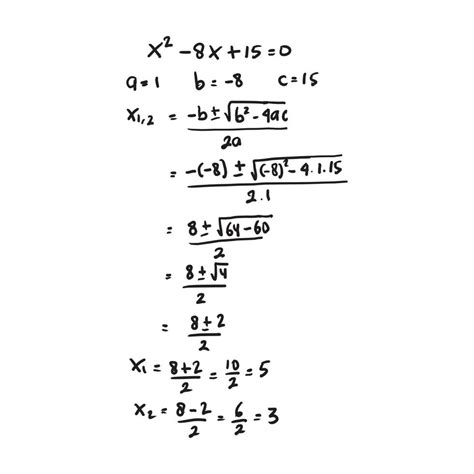 x² - 8x + 15 = 0
a = 1 b = -8 c = 15
x₁,₂ = (-b ± √(b² - 4ac)) / 2a
= (-(-8) ± √((-8)² - 4.1.15)) / 2.1
= (8 ± √(64 - 60)) / 2
= (8 ± √4) / 2
= (8 ± 2) / 2
x₁ = (8+2)/2 = 10/2 = 5
x₂ = (8-2)/2 = 6/2 = 3